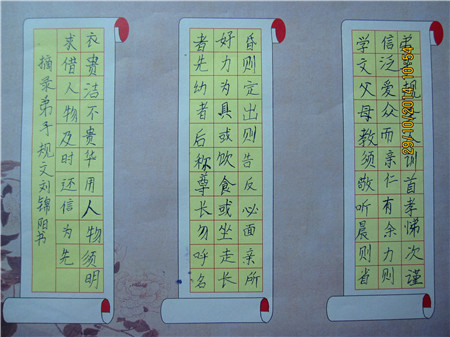 弟子规圣人训首孝悌次谨
信泛爱众而亲仁有余力则
学文父母教须敬听晨则省
昏则定出则告反必面亲所
好力为具或饮食或坐走长
者先幼者后称尊长勿呼名
衣贵洁不贵华用人物须明
求借人物及时还信为先
摘录弟子规文刘锦阳书
29/10/2014 10:54